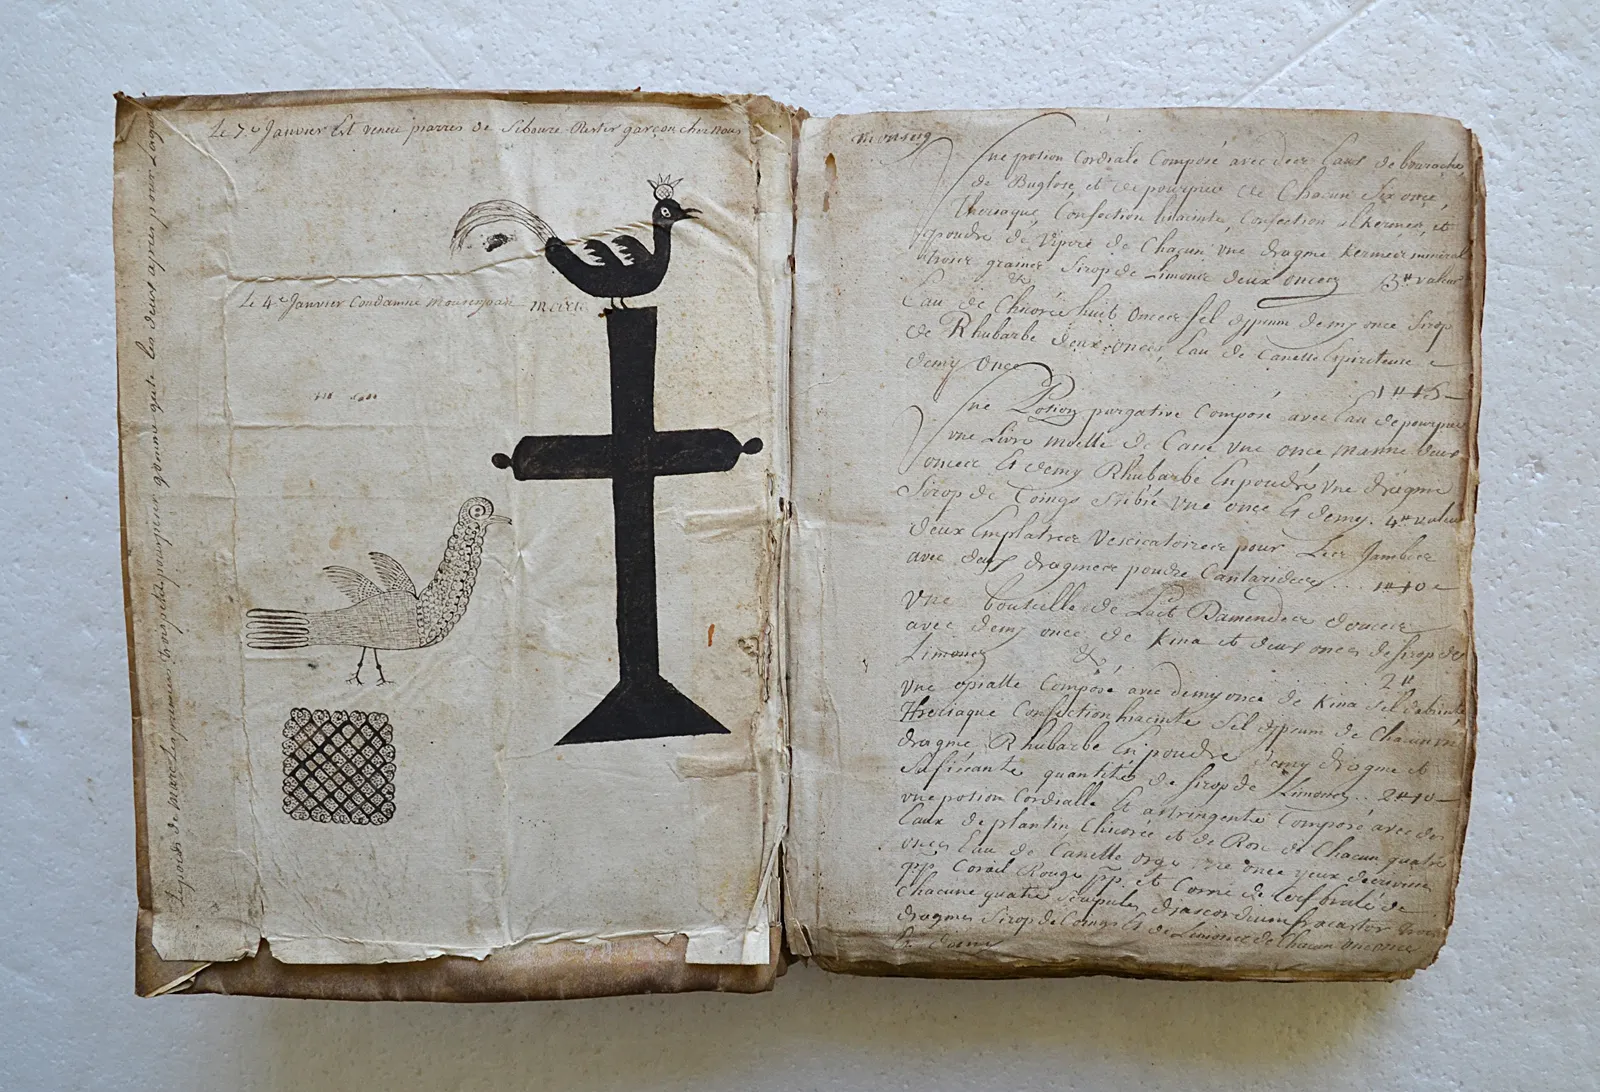 Le 7.e Janvier Est venu piarres de Siboure Rester garçon chez nous
Le 4.e Janvier Condamné
Le poids de marc
monseig
Une potion Cordiale Composé avec deux Eaux de bourache,
de Buglose, et de pourpier de Chacun Six once,
Theriaque, Confection hiacinte, Confection alkermes, et
poudre de vipere de Chacun vne dragme Kermes mineral
trois graines Sirop de Limons deux onces 3# valeur
&
Eau de Chicorée huit onces sel depsum demy once Sirop
de Rhubarbe deux onces, Eau de Canelle Spiriteuse
demy once
1# 15
Une Potion purgative Composé avec Eau de pourpier
vne Livre moelle de Casse vne once manne deux
onces Et demy Rhubarbe En poudre vne dragme
Sirop de Coings vne once Et demy. 4# valeur
deux Emplatres Vescicatoires pour Les Jambes
avec deux dragmes poudre Cantarides 1# 10
vne bouteille de Lait Damendes douces
avec demy once de Kina et deux onces de sirop de
Limons
& 2#
vne opiatte Composé avec demy once de Kina Sel dabsinte
Theriaque Confection hiacinte Sel depsum de Chacun vn
dragme Rhubarbe En poudre demy dragme et
Sufisante quantité de sirop de Limons 2# 10
vne potion Cordialle Et astringente Composé avec des
Eaux de plantin Chicorée et de Rose de Chacun quatre
onces Eau de Canelle orge once yeux decrevisses
pp. Corail Rouge pp. et Corne de Cerf brulé de
Chacune quatre Scrupules, diascordium fracastor
dragmes Sirop de Coings Et de Limons de Chacun once